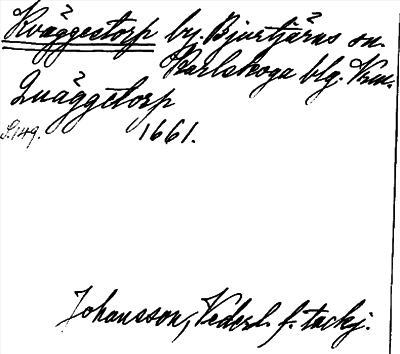 Kväggestorp by. Bjurtjärns sn.
Karlskoga blg. Vrm.
Quäggetorp
S. 149. 1661.
Johansson, Vederl. f. tackj.